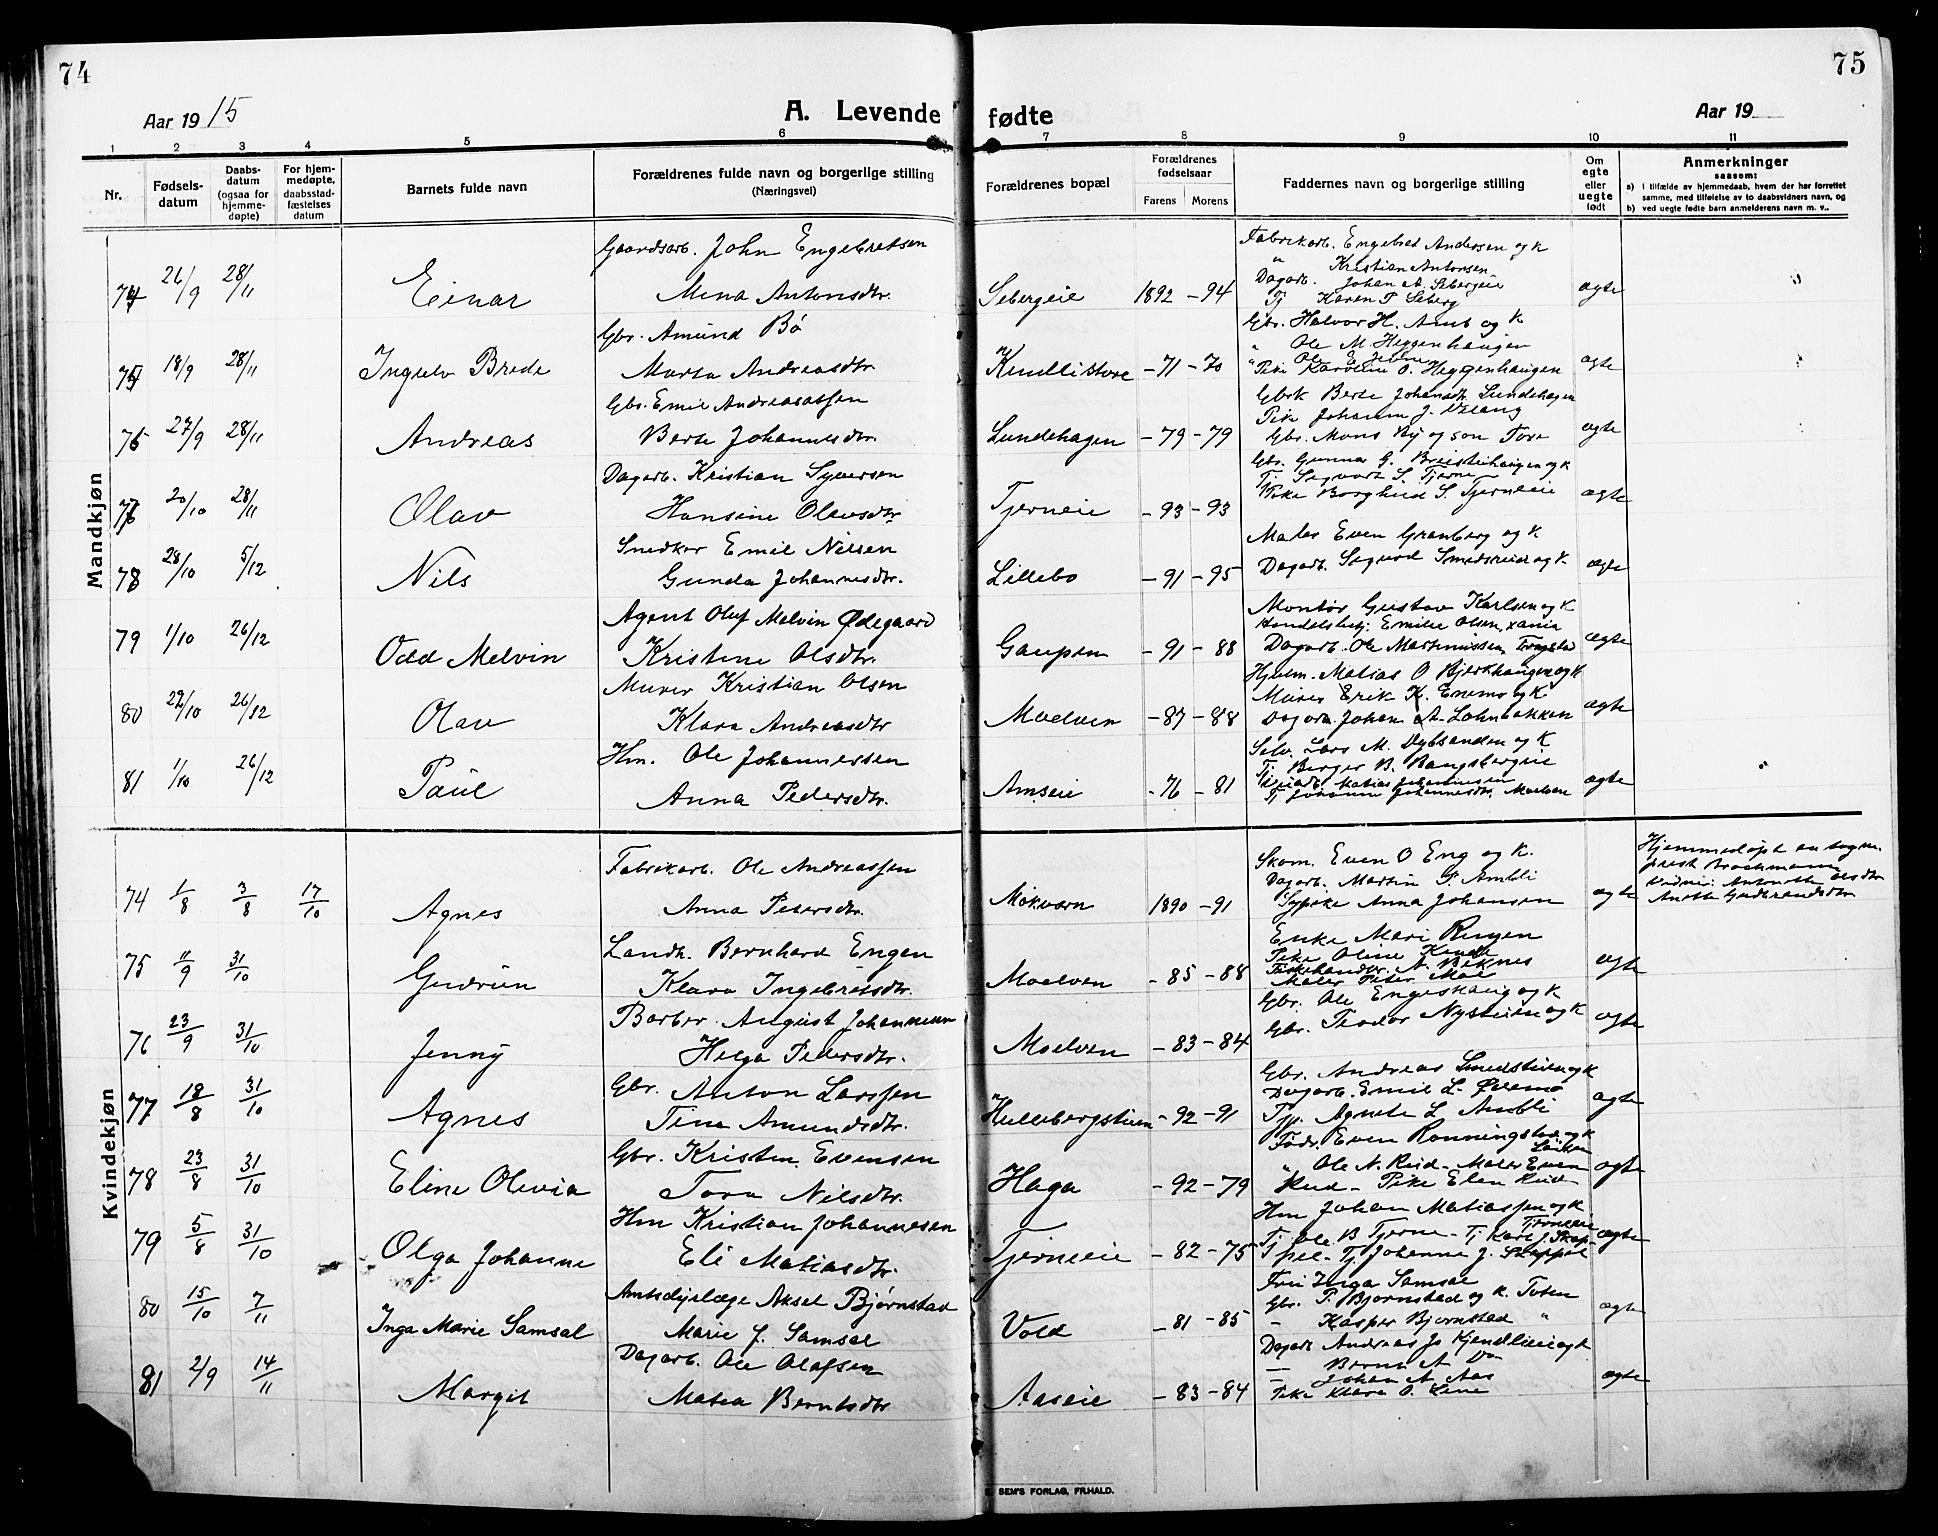 74
75
Aar 1915
A. Levende fødte
Aar 19
1 2 3 4 5 6 7 8 9 10 11
Nr.
Fødsels-
datum
Daabs-
datum
(ogsaa for
hjemme-
døpte)
For hjem-
medøpte,
daabsstad-
fæstelses
datum
Barnets fulde navn
Forældrenes fulde navn og borgerlige stilling
(Næringsvei)
Forældrenes bopæl
Forældrenes
fødselsaar
Farens Morens
Faddernes navn og borgerlige stilling
Om
egte
eller
uegte
født
Anmerkninger
saasom:
a) I tilfælde av hjemmedaab, hvem der har forrettet
samme, med tilføielse av to daabsvidners navn, og
b) ved uegte fødte barn anmelderens navn m. v..
Mandkjøn
74 26/9 28/11 Einar
Gaardsarb. John Engebretsen
Mina Antonsdtr.
Sebergeie 1892 - 94
Fabrikarb. Engebret Andersen og k
" Kristian Antonsen
Dagarb. Johan A. Sebergeie
Tj Karen P. Seberg
ægte
75 18/9 28/11 Ingulv Brede
Gbr. Amund Bø
Marta Andreasdtr.
Kindlistore - 71 - 70
Gbr. Halvor H. Amb og k
" Ole M. Heggenhaugen
" Ole E. Jevne
Pike Karoline O. Heggenhaugen
ægte
76 27/9 28/11 Andreas
Gbr. Emil Andreasassen
Berte Johannesdtr.
Lundehagen - 79 - 79
Gbrk Berte Johansdtr Lundehagen
Pike Johanna J.
Gbr. Mons By og son Tore
ægte
77 20/10 28/11 Olav
Dagarb. Kristian Syversen
Hansine Olavsdtr
Tjerneie - 93 - 93
Gbr. Gunnar G. Breistihaugen og k
Tj. Sigvart S. Tjerne
Pike Borghild S. Tjerneie
ægte
78 28/10 5/12 Nils
Snedker Emil Nilsen
Gunda Johannesdtr.
Lillebo - 91 - 95
Maler Even Granberg og k.
Dagarb. Sigurd Smedsrud og k.
ægte
79 1/10 26/12 Odd Melvin
Agent Oluf Melvin Ødegaard
Kristine Olsdtr.
Gaupen - 91 - 88
Montør Gustav Karlsen og k
Handelsbetj. Emilie Olsen, Xania
Dagarb. Ole Martinussen, Trøgstad
ægte
80 29/10 26/12 Olav
Murer Kristian Olsen
Klara Andreasdtr
Moelven - 87 - 88
Hjulm. Matias O Bjerkhaugen og k
Murer Erik K. Enemo og k
Dagarb. Johan A. Lohnbakken
ægte
81 1/10 26/12 Paul
Hm. Ole Johannessen
Anna Pedersdtr.
Amseie - 76 - 81
Selv. Lars M. Dybsanden og k
Tj Berger B. Bangsbergeie
Matias Johannesen
Tj Johanne Johannesdtr. Moelven
ægte
Kvindekjøn
74 1/8 3/8 17/10 Agnes
Fabrikarb. Ole Andreassen
Anna Petersdtr.
Mokvarn 1890 - 91
Skom. Even O Eng og k.
Dagarb. Martin P. Ambli
Sypike Anna Johansen
ægte
Hjemmedøpt av sogne-
prest Brochmann
Vidner: Antonette Olsdtr
Anette Gudbrandsdtr
75 11/9 31/10 Gudrun
Landh. Bernhard Engen
Klara Ingebretsdtr.
Moelven - 85 - 88
Enke Mari Ringen
Pike Oline Kindli
Fiskehandler A. Beknes
Maler Peter Moe
ægte
76 23/9 31/10 Jenny
Barber August Johannessen
Helga Pedersdtr.
Moelven - 83 - 84
Gbr. Ole Engeskaug og k
Gbr. Teodor Nystuen og k
ægte
77 18/8 31/10 Agnes
Gbr. Anton Larssen
Tina Amundsdtr.
Hullebergstuen - 92 - 91
Gbr. Andreas Smedstuen og k
Dagarb. Emil L. Øvemo
Tj. Agnete L. Ambli
ægte
78 23/8 31/10 Eline Olivia
Gbr. Kristen Evensen
Tora Nilsdtr.
Haga - 92 - 79
Føder. Even Ronningstad og k
" Ole N. Rud - Maler Even
Rud - Pike Elen Rud
ægte
79 5/8 31/10 Olga Johanne
Hm Kristian Johannesen
Eli Matiasdtr.
Tjerneie - 82 - 75
Hm Johan Matiassen og k
Tjerneeie
Tj Ole B Tjerne - Tj Karl J. Skap-
pel - Tj. Johanne J. Skappel
ægte
80 15/10 7/11 Inga Marie Samsal
Amtsdyrlæge Aksel Bjørnstad
Marie J. Samsal
Vold - 81 - 85
Fru Inga Samsal
Gbr. P. Bjørnstad og k. Toten
- Kasper Bjørnstad "
ægte
81 2/9 14/11 Margit
Dagarb. Ole Olafsen
Matea Berntsdtr
Aaseie - 83 - 84
Dagarb Andreas Jo Kjendlieie og k
- Bernt A Do
- Johan A Aas
Pike Klara O. Lene
ægte
SEM'S FORLAG, FR.HALD.